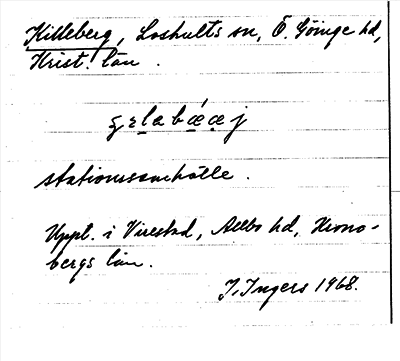 Killeberg, Loshults sn, Ö. Göinge hd,
Krist. län.
stationssamhälle.
Uppt. i Virestad, Allbo hd, Krono-
bergs län.
J. Ingers 1968.